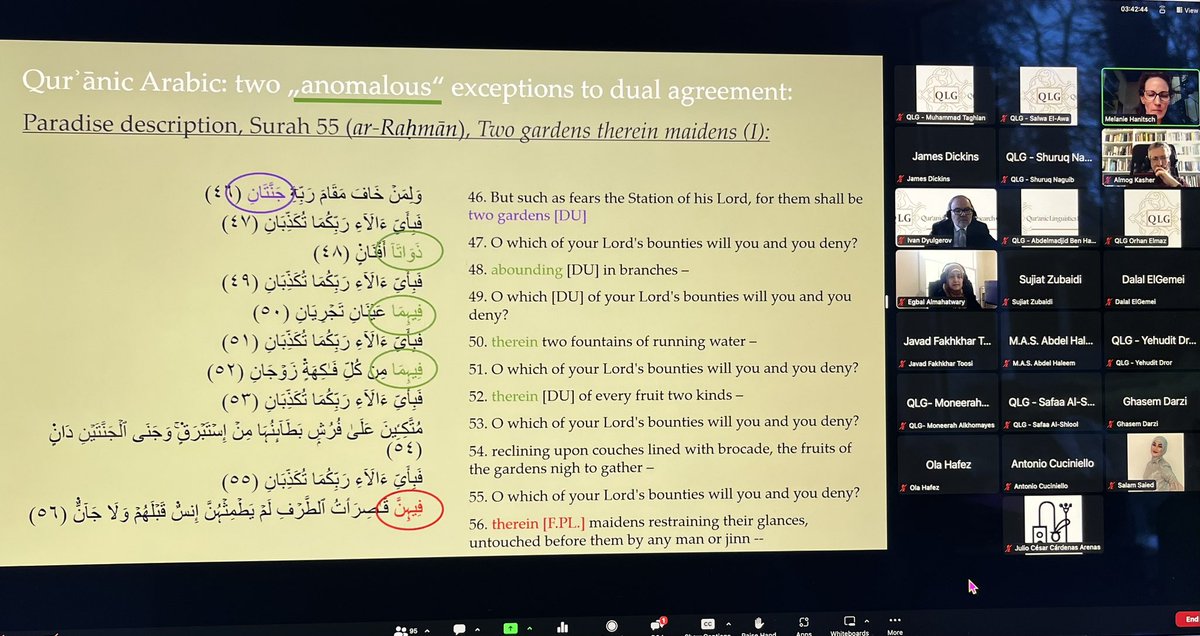 03:42:44
View
Qurʾānic Arabic: two „anomalous“ exceptions to dual agreement:
Paradise description, Surah 55 (ar-Raḥmān), Two gardens therein maidens (I):
وَلِمَنْ خَافَ مَقَامَ رَبِّهِ جَنَّتَانِ (٤٦)
فَبِأَيِّ ءَالَآءِ رَبِّكُمَا تُكَذِّبَانِ (٤٧)
ذَوَاتَآ أَفْنَانٍ (٤٨)
فَبِأَيِّ ءَالَآءِ رَبِّكُمَا تُكَذِّبَانِ (٤٩)
فِيهِمَا عَيْنَانِ تَجْرِيَانِ (٥٠)
فَبِأَيِّ ءَالَآءِ رَبِّكُمَا تُكَذِّبَانِ (٥١)
فِيهِمَا مِن كُلِّ فَـٰكِهَةٍ زَوْجَانِ (٥٢)
فَبِأَيِّ ءَالَآءِ رَبِّكُمَا تُكَذِّبَانِ (٥٣)
مُتَّكِـِٔينَ عَلَىٰ فُرُشٍۭ بَطَآئِنُهَا مِنْ إِسْتَبْرَقٍۢ ۚ وَجَنَى ٱلْجَنَّتَيْنِ دَانٍ
(٥٤)
فَبِأَيِّ ءَالَآءِ رَبِّكُمَا تُكَذِّبَانِ (٥٥)
فِيهِنَّ قَـٰصِرَٰتُ ٱلطَّرْفِ لَمْ يَطْمِثْهُنَّ إِنسٌ قَبْلَهُمْ وَلَا جَآنٌّ (٥٦)
46. But such as fears the Station of his Lord, for them shall be
two gardens [DU]
47. O which of your Lord's bounties will you and you deny?
48. abounding [DU] in branches –
49. O which [DU] of your Lord's bounties will you and you
deny?
50. therein two fountains of running water –
51. O which of your Lord's bounties will you and you deny?
52. therein [DU] of every fruit two kinds –
53. O which of your Lord's bounties will you and you deny?
54. reclining upon couches lined with brocade, the fruits of
the gardens nigh to gather –
55. O which of your Lord's bounties will you and you deny?
56. therein [F.PL.] maidens restraining their glances,
untouched before them by any man or jinn --
QLG
QLG - Muhammad Taghian
QLG
QLG - Salwa El-Awa
Melanie Hanitsch
James Dickins
James Dickins
QLG - Shuruq Na...
QLG - Shuruq Naguib
Almog Kasher
Ivan Dyulgerov
QLG - Abdelmadjid Ben Ha...
QLG
QLG Orhan Elmaz
Egbal Almahatwary
Sujiat Zubaidi
Sujiat Zubaidi
Dalal ElGemei
Dalal ElGemei
Javad Fakhkhar T...
Javad Fakhkhar Toosi
M.A.S. Abdel Hal...
M.A.S. Abdel Haleem
QLG - Yehudit Dr...
QLG - Yehudit Dror
QLG- Moneerah...
QLG- Moneerah Alkhomayes
QLG - Safaa Al-S...
QLG - Safaa Al-Shlool
Ghasem Darzi
Ghasem Darzi
Ola Hafez
Ola Hafez
Antonio Cuciniello
Antonio Cuciniello
Salam Saied
Julio César Cárdenas Arenas
95
CC
Raise Hand
Apps
Whiteboards
More
End